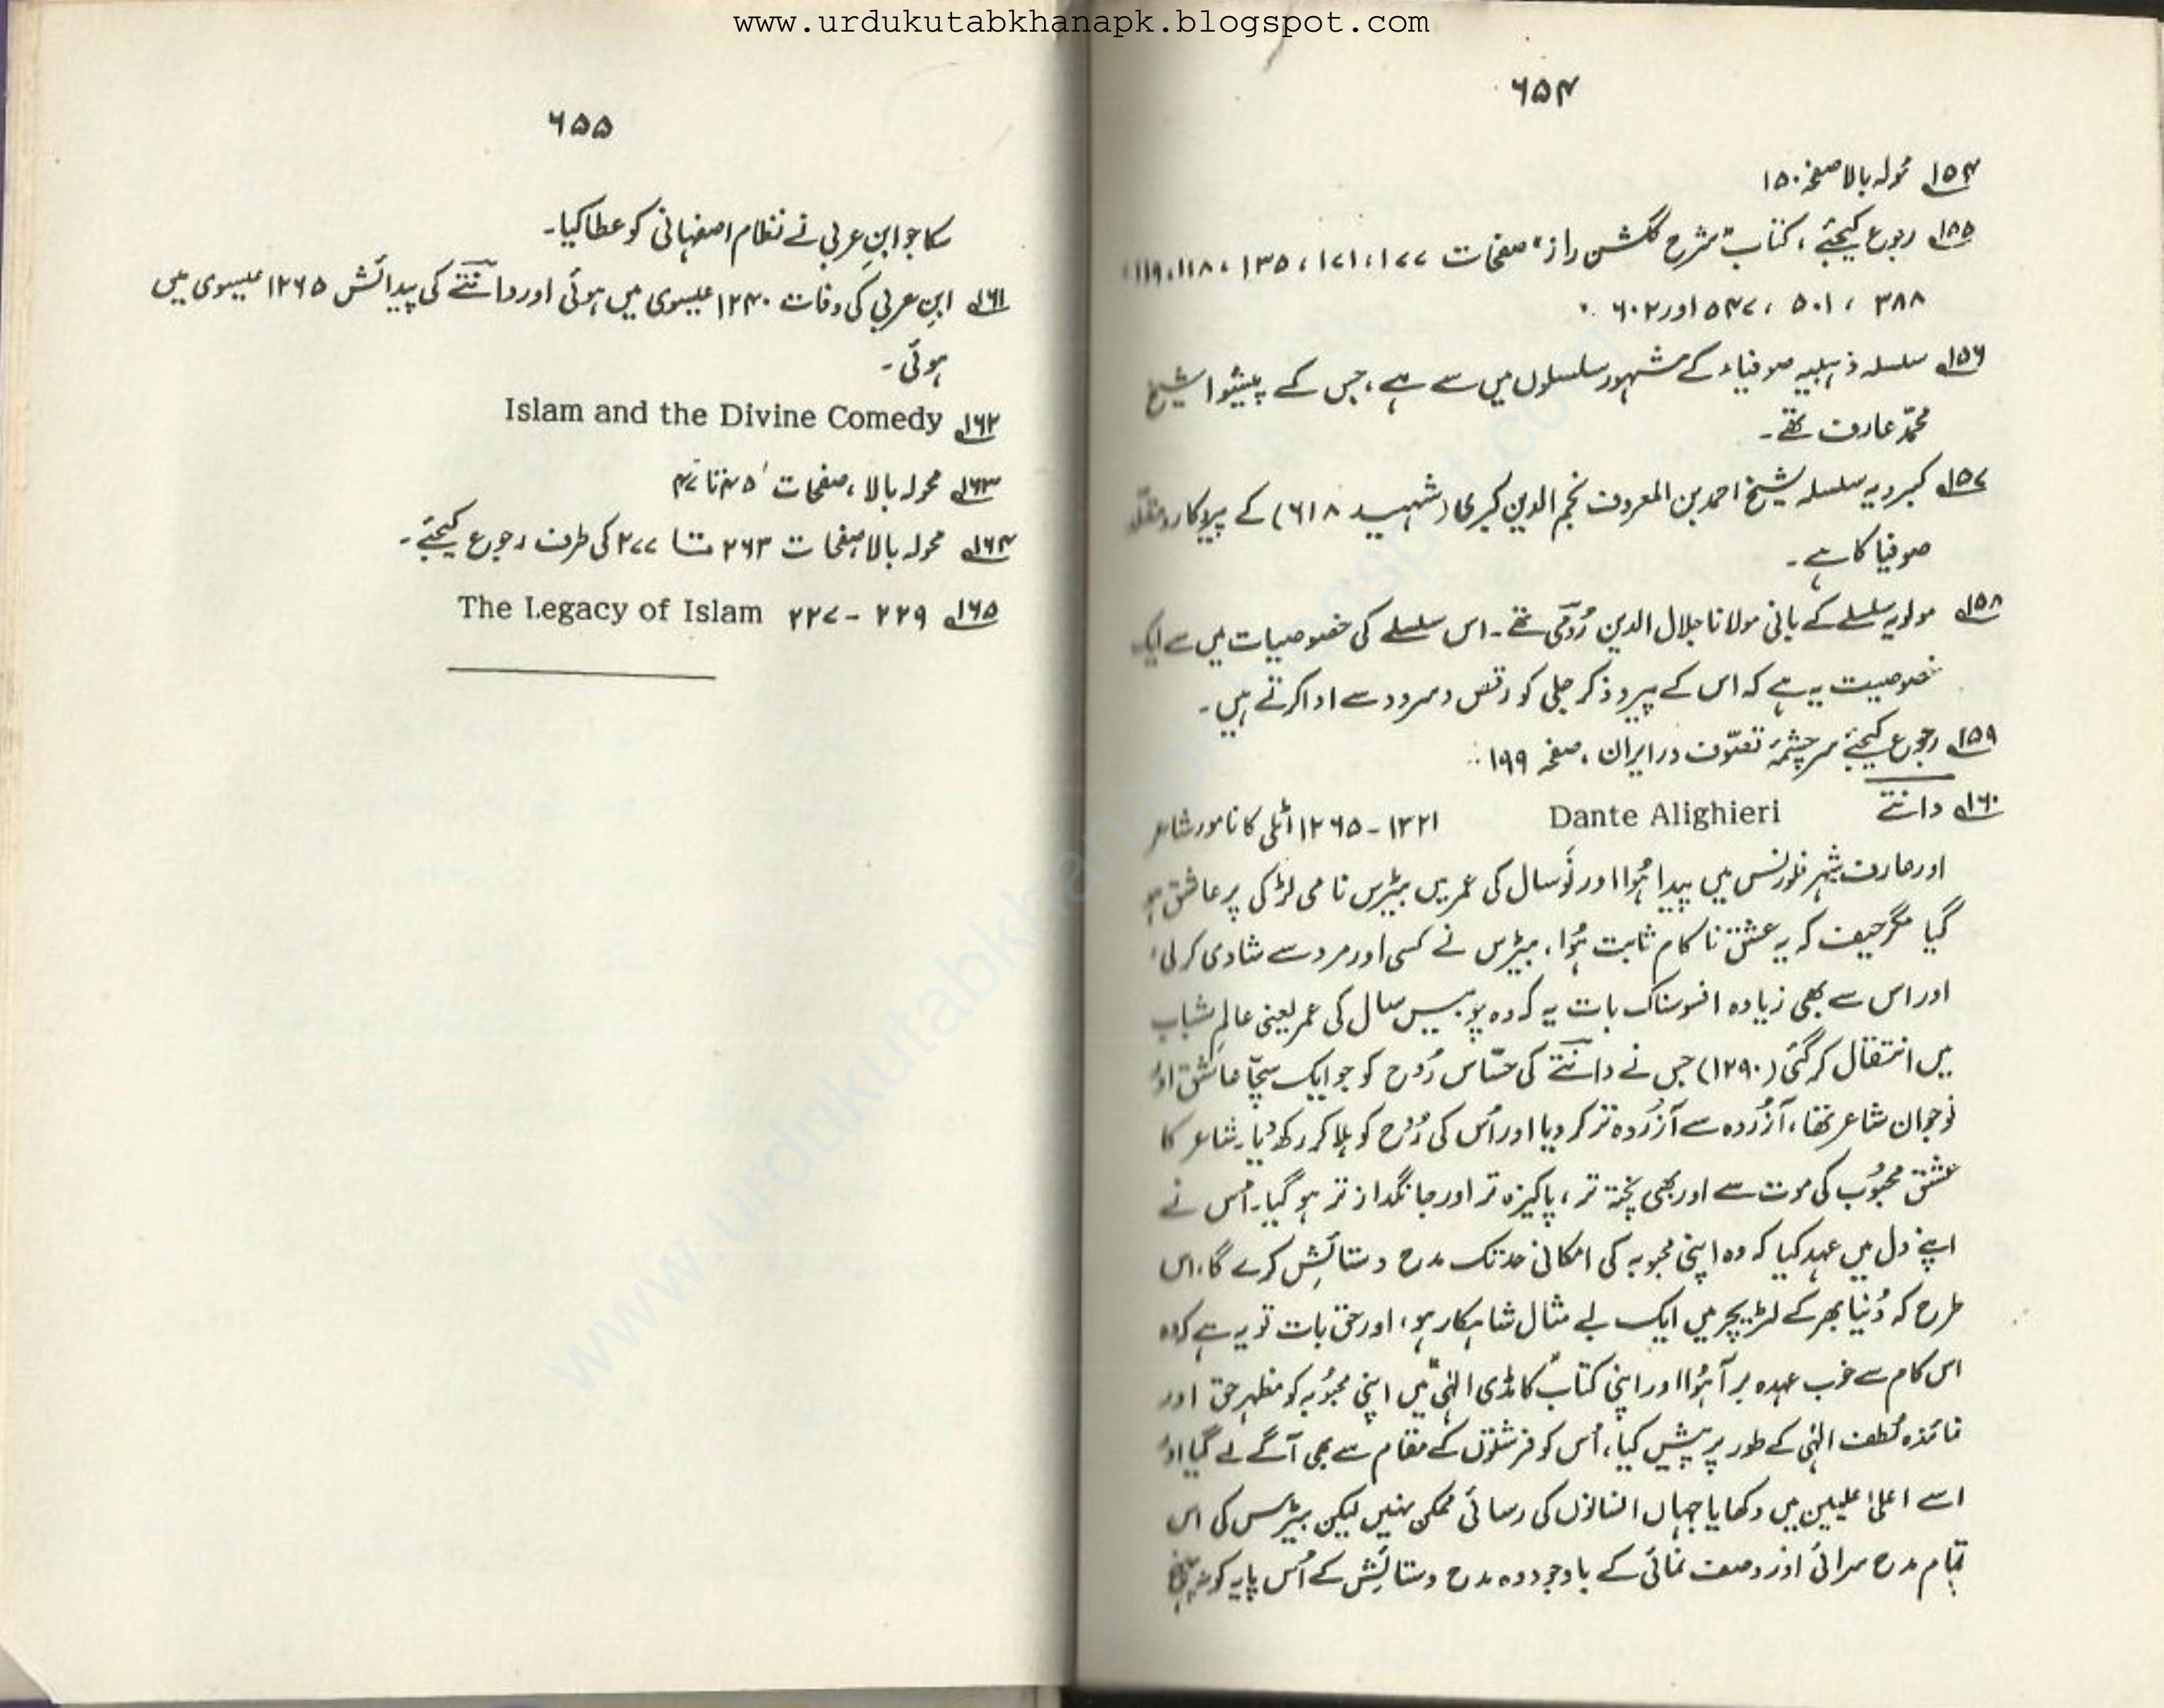 www.urdukutabkhanapk.blogspot.com
۶۵۴
۱۵۴؎ محولہ بالا صفحہ ۱۵۰
۱۵۵؎ رجوع کیجئے، کتاب "شرح گلشن راز" صفحات ۱۷۷، ۱۷۱، ۱۳۵، ۱۱۸، ۱۱۹،
۳۸۸ ، ۵۰۱ ، ۵۴۷ اور ۶۰۲
۱۵۶؎ سلسلہ ذہبیہ صوفیاء کے مشہور سلسلوں میں سے ہے، جس کے پیشوا شیخ
محمدّ عارف تھے۔
۱۵۷؎ کبرویہ سلسلہ شیخ احمد بن المعروف نجم الدین کبری (شہید ۶۱۸) کے پیروکار و مقلّد
صوفیا کا ہے۔
۱۵۸؎ مولویہ سلسلے کے بانی مولانا جلال الدین رُومی تھے۔ اس سلسلے کی خصوصیات میں سے ایک
خصوصیت یہ ہے کہ اس کے پیرو ذکر جلی کو رقص و سرود سے ادا کرتے ہیں۔
۱۵۹؎ رجوع کیجئے سرچشمۂ تصوّف در ایران، صفحہ ۱۹۹
۱۶۰؎ دانتے Dante Alighieri ۱۳۲۱ - ۱۲۶۵ اٹلی کا نامور شاعر
اور عارف شہر فلورنس میں پیدا ہُوا اور نَو سال کی عمر میں بیٹرس نامی لڑکی پر عاشق ہو
گیا مگر حیف کہ یہ عشق ناکام ثابت ہُوا، بیٹرس نے کسی اور مرد سے شادی کر لی،
اور اس سے بھی زیادہ افسوسناک بات یہ کہ وہ چوبیس سال کی عمر یعنی عالمِ شباب
میں انتقال کر گئی (۱۲۹۰) جس نے دانتے کی حسّاس رُوح کو جو ایک سچّا عاشق اور
نوجوان شاعر تھا، آزُردہ سے آزُردہ تر کر دیا اور اُس کی رُوح کو ہلا کر رکھ دیا۔ شاعر کا
عشق محبُوب کی موت سے اور بھی پختہ تر، پاکیزہ تر اور جانگداز تر ہو گیا۔ اُس نے
اپنے دل میں عہد کیا کہ وہ اپنی محبوبہ کی امکانی حد تک مدح و ستائش کرے گا، اس
طرح کہ دُنیا بھر کے لٹریچر میں ایک بے مثال شاہکار ہو، اور حق بات تو یہ ہے کہ وہ
اس کام سے خوب عہدہ برآ ہُوا اور اپنی کتاب "کامڈی الٰہی" میں اپنی محبُوبہ کو مظہرِ حق اور
نمائندہ لُطف الٰہی کے طور پر پیش کیا، اُس کو فرشتوں کے مقام سے بھی آگے لے گیا اور
اسے اعلیٰ علیین میں دکھایا جہاں انسانوں کی رسائی ممکن نہیں لیکن بیٹرس کی اس
تمام مدح سرائی اور وصف نمائی کے باوجود وہ مدح و ستائش کے اُس پایہ کو نہ پہنچ
۶۵۵
سکا جو ابنِ عربی نے نظام اصفہانی کو عطا کیا۔
۱۶۱؎ ابنِ عربی کی وفات ۱۲۴۰ عیسوی میں ہوئی اور دانتے کی پیدائش ۱۲۶۵ عیسوی میں
ہوئی۔
۱۶۲؎ Islam and the Divine Comedy
۱۶۳؎ محولہ بالا، صفحات ۴۵ تا ۴۷
۱۶۴؎ محولہ بالا صفحات ۲۶۳ تا ۲۷۷ کی طرف رجوع کیجئے۔
۱۶۵؎ The Legacy of Islam ۲۲۷ - ۲۲۹
www.urdukutabkhanapk.blogspot.com